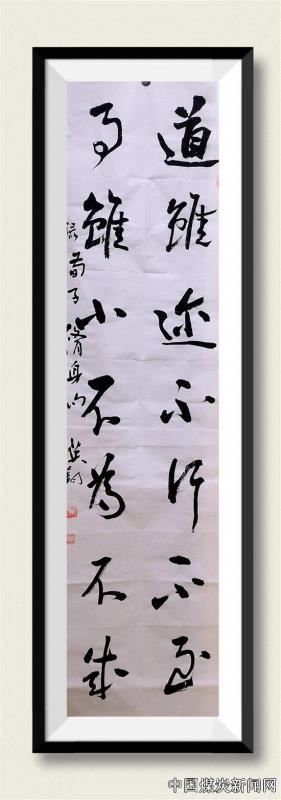 道雖迩不行不至
事雖小不為不成
荀子脩身句 英
中国煤炭新闻网